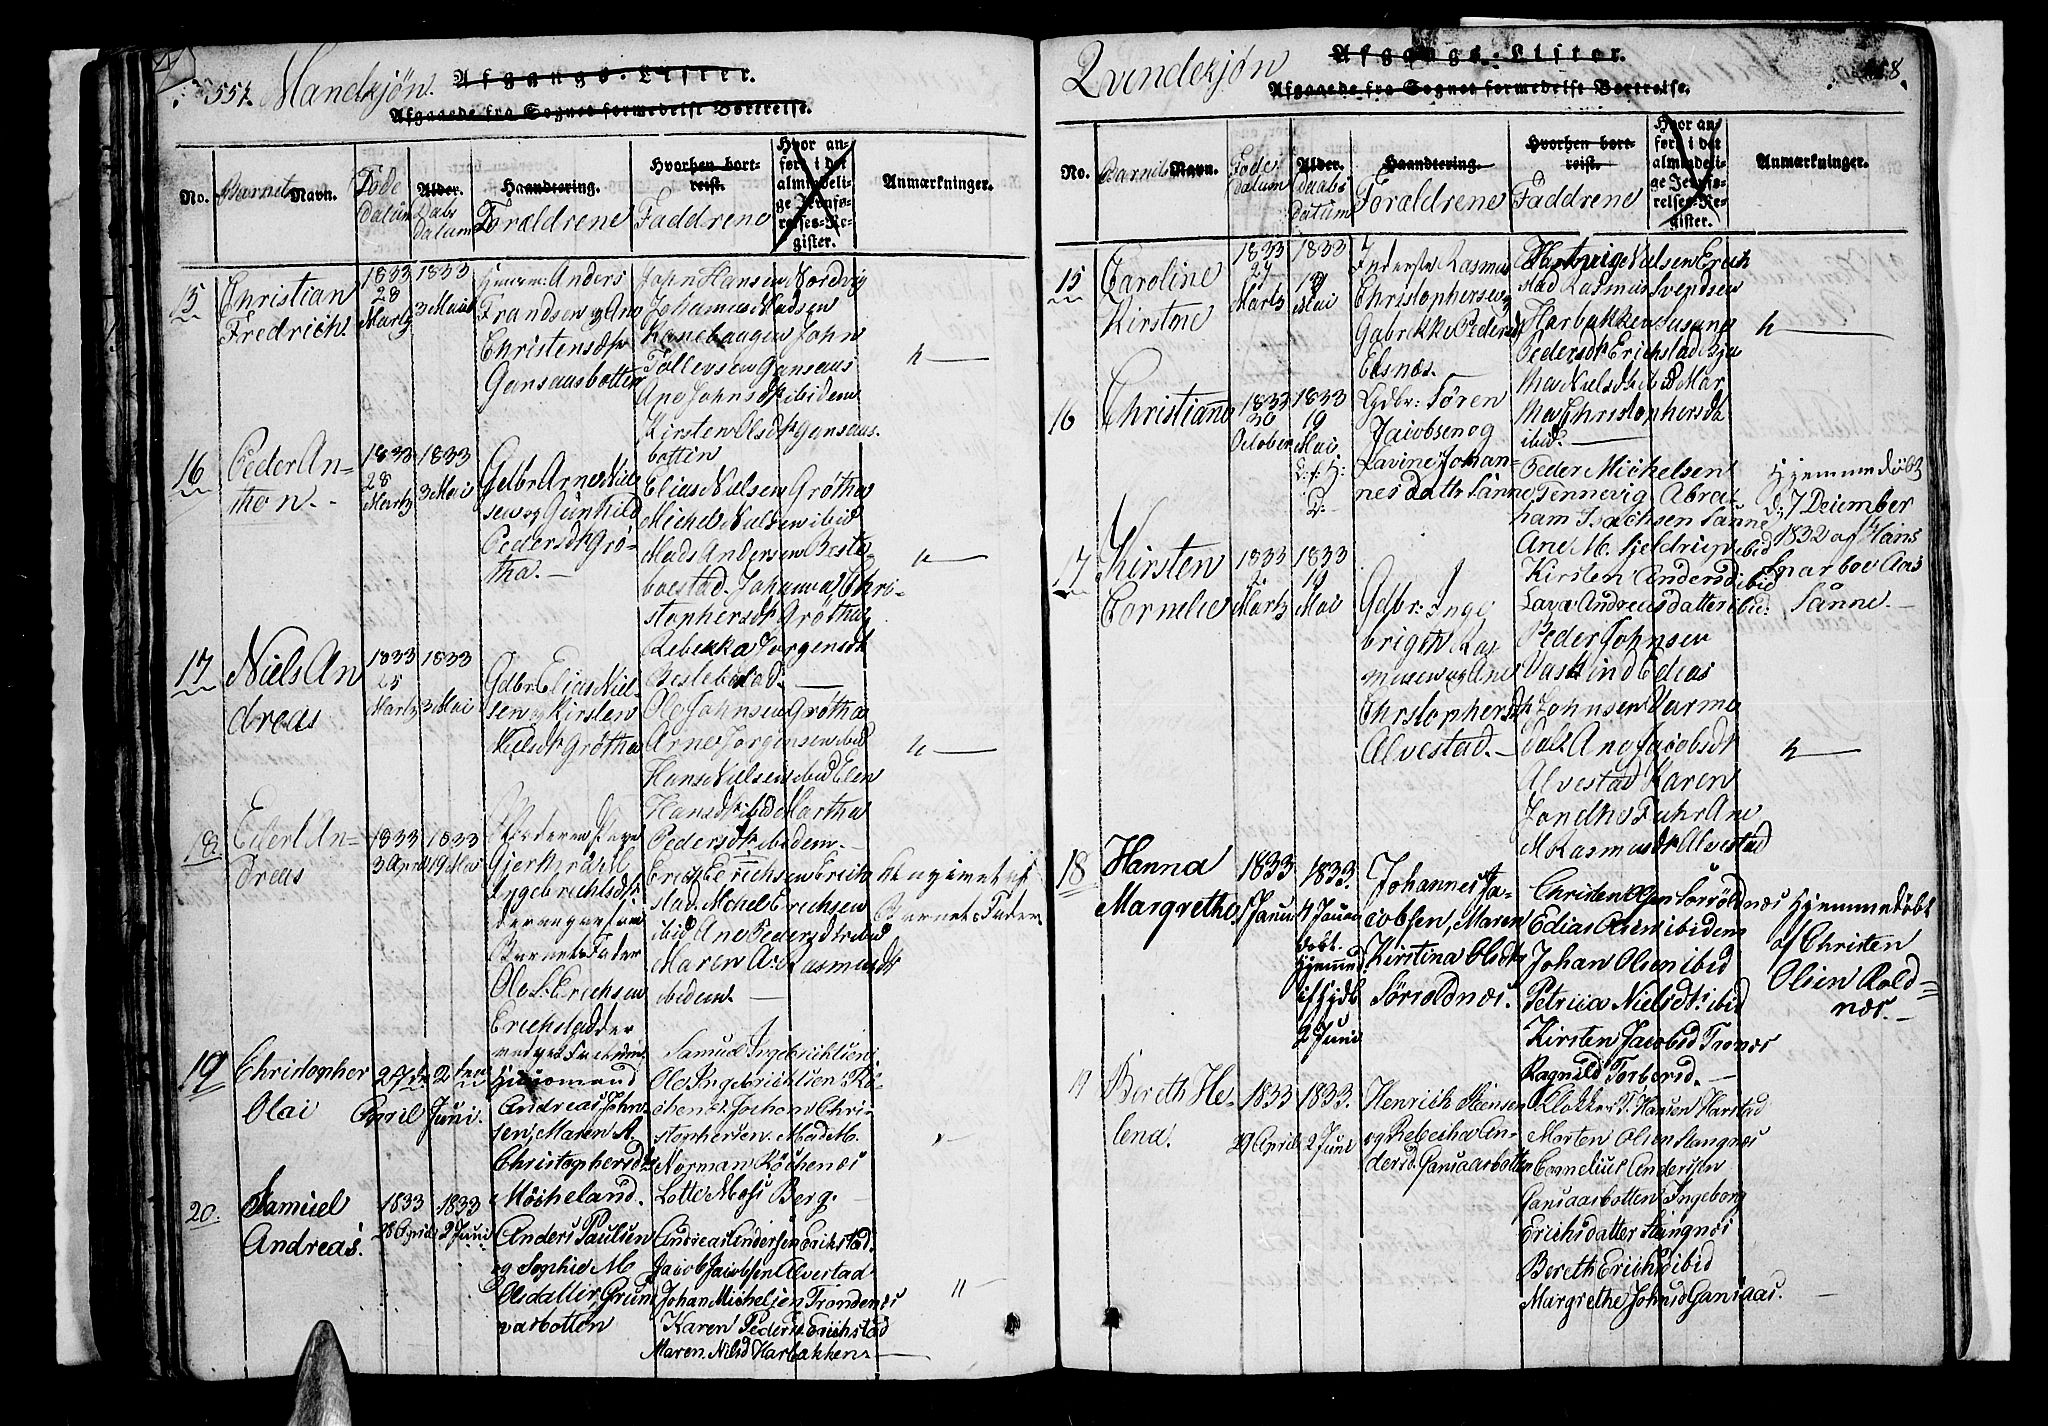 557. Mandkjøn. Afgangs-Lister.
Afgaaede fra Sognet formedelst Bortreise.
No.
Barnets Navn.
Føde
Datum
Alder.
Daabs
datum
Haandtering.
Forældrene
Hvorhen bort-
reist.
Faddrene
Hvor an-
ført i det
almindeli-
ge Jevnfø-
relses-Re-
gister.
Anmærkninger.
15
Christian
Fredrich.
1833
28
Martz
1833
3 Mai
Huusm: Anders
Frandsen og Ane
Christensdtr
Gansaasbotten
John Hansen Nordvig
Johannes Madsen
Kanebaagen John
Tollevsen Gansaas
Ane Johnsdtr ibidem
Kirsten Olsdtr Gansaas-
botten
16
Peder An-
thon.
1833
28
Martz
1833
3 Mai
Gdbr Arne Niel-
sen og Gunhild
Pedersdtr Grø-
tha.
Elias Nielsen Grøtha
Michel Nielsen ibid
Mads Andersen Beste-
boestad. Johanna Chri-
stophersdtr Grøtha
Rebekka Jørgensdt
Bestebostad.
17
Niels An
dreas
1833
25
Martz
1833
3 Mai
Gdbr Elias Niel-
sen og Kirsten
Nielsdtr Grøtha
Ole Johnsen Grøtha
Arne Jørgensen ibid
Hans Nielsen ibid Elen
Hansdtr ibid Martha
Pedersdtr ibidem.
18
Eilert An-
dreas
1833
3 April
1833
19 Mai
Moderen Pige
Gjertrud
Ingebrichtsdtr
der angav som
Barnets Fader
Ole L. Erichsen
Erichstad der
Erich Erichsen Erich
stad Michel Erichsen
ibid Ane Pedersdtr ibid
Maren A. Rasmusdt
ibidem.
Barnets Fader
19
Christopher
Olai
27de
April
2den
Juni.
Huusmand
Andreas John-
sen, Maren A.
Christophersdt
Møcheland.
Samuel Ingebrichtsen
Ole Ingebrichtsen Kö-
chen. Johan Chri-
stophersen. Mad M.
Norman Köchenes
Lotte Moss Berg.
20.
Samuel
Andreas.
1833
28 April
1833
2 Juni
Anders Paulsen
og Sophie M
Olsdatter Grun-
vasbotten
Andreas Andersen Erikstad.
Jacob Jacobsen Alvestad
Johan Michelsen Trondenæs
Karen Pedersd Erichstad
Maren Nilsd Harbakken
Qvindekjøn Afgangs-Lister.
Afgaaede fra Sognet formedelst Bortreise.
No.
Barnets Navn.
Føde
Datum
Alder.
Daabs
datum
Haandtering.
Forældrene
Hvorhen bort-
reist.
Faddrene
Hvor an-
ført i det
almindeli-
ge Jevnfø-
relses-Re-
gister.
Anmærkninger.
15
Caroline
Kirstine
1833
27
Martz
1833
19
Mai
Inderste Rasmus
Christophersen og
Gabrikke Pedersdt
Elsnes.
Nielsen Erich
stad Rasmus Svendsen
Harbakken Susana
Pedersdtr Erichstad
Nielsdtr ibid Mar
tha Christophersdt
ibid.
16
Christiane
1833
30
October
1833
19
Mai.
Gdbr: Søren
Jacobsen og
Lavine Johan-
nesdattr Sanne
Peder Michelsen
Tennevig Abra-
ham Isachsen Sanne
Ane M. Hjeldrup ibid
Kirsten Andersd ibid
Lava Andreasdatter ibid:
Hjemmedøbt
d: 7 December
1832 af Hans
Sparboe Aas
Sanne.
17
Kirsten
Cornelie
1833
2
Martz
1833
19
Mai
Gdbr: Inge
brigth Ras
musen og Ane
Christophersdt
Alvestad.
Peder Johnsen
Vaskind Edias
Johnsen Varme
dal. Ane Jacobsdt
Alvestad Karen
Jondtr Fuhr Ane
M. Rasmusdtr Alvestad
18
Hanna
Margrethe
1833
1 Januar
1833.
4 Januar
døbt.
hjemme
2 Juni
Johannes Ja-
cobsen, Maren
Kirstina Olsdtr
Sørroldnæs.
Christen Olsen Sørroldnæs
Edias Olsen ibidem
Johan Olsen ibid
Petricia Nielsdtr ibid
Kirsten Jacobsd Tronæs
Ragnild Torbersd.
Hjemmedøbt
af Christen
Olsen Rold-
næs.
19
Bereth He-
lena.
1833
29 April
1833.
2 Juni
Henrich Steensen
og Rebecha An-
dersd. Gansaasbotten
Klokker T. Hansen Harstad
Morten Olsen Stangnæs
Cornelius Andersen
Gansaasbotten Ingeborg
Erichsdatter Stangnæs
Bereth Erichsd ibid
Margrethe Johnsd Gansaas.